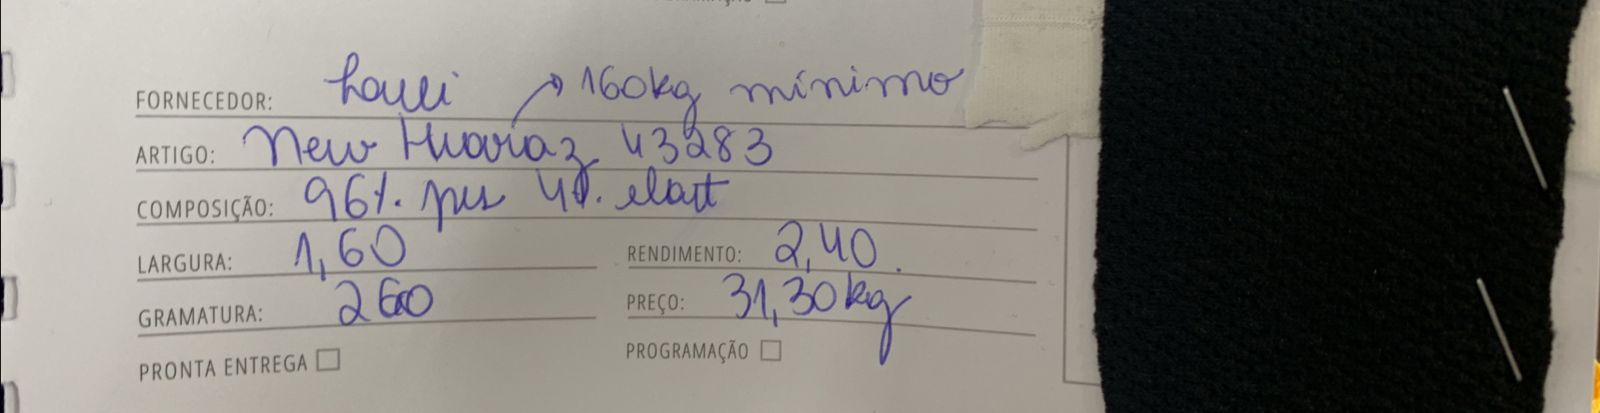 FORNECEDOR: → 160kg mínimo
ARTIGO: New Huaraz 43283
COMPOSIÇÃO: 96%. pes 4%. elast
LARGURA: 1,60 RENDIMENTO: 2,40.
GRAMATURA: 260 PREÇO: 31,30kg
PRONTA ENTREGA PROGRAMAÇÃO